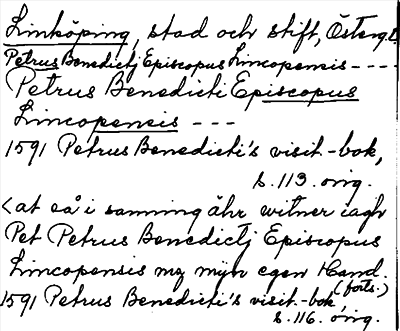 Linköping, stad och stift, Österg.
Petrus Benedictj Episcopus Lincopensis ----
Petrus Benedicti Episcopus
Lincopensis ---
1591 Petrus Benedicti's visit.-bok,
s. 113. orig.
<at så i sanning ähr witner iagh
Pet Petrus Benedictj Episcopus
Lincopensis mz mijn egen Hand.
(forts.)
1591 Petrus Benedicti's visit.-bok,
s. 116. orig.